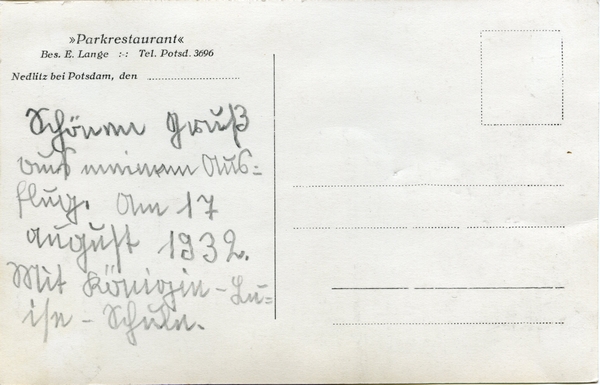 »Parkrestaurant«
Bes. E. Lange :-: Tel. Potsd. 3696
Nedlitz bei Potsdam, den
Schönen Gruß
aus meinem Aus=
flug. Am 17
august 1932.
Mit Königin-Lu=
ise-Schule.